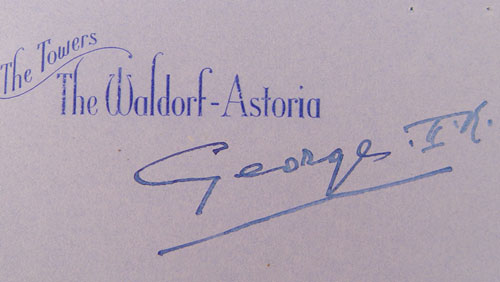 The Towers
The Waldorf-Astoria
George .II.R.